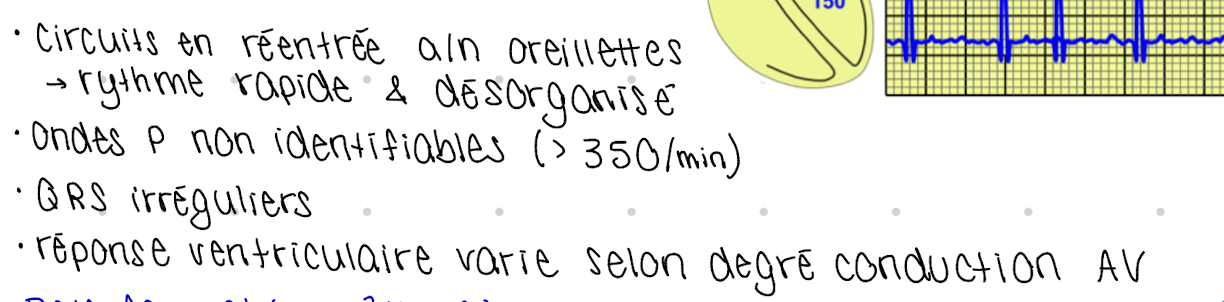 150
• circuits en réentrée a/n oreillettes
→ rythme rapide & désorganisé
• ondes P non identifiables (> 350/min)
• QRS irréguliers
• réponse ventriculaire varie selon degré conduction AV